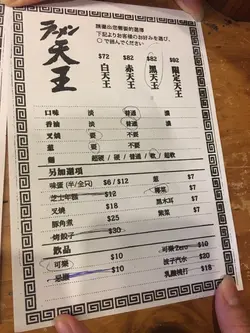 ラーメン
天王
請選出您需要的選擇
下記よりお客様のお好みを選び、
○で囲んでください
$72 $82 $82 $92
白天王 赤天王 黑天王 限定天王
口味 淡 普通 濃
香油 淡 普通 濃
叉燒 要 不要
蔥 要 不要
麵 超硬 / 硬 / 普通 / 軟 / 超軟
另加選項
味蛋 (半/全只) $6 / $12 蔥 $7
芝士年糕 $12 $7
叉燒 $18 黑木耳 $7
豚角煮 $25 紫菜 $7
煎餃子 $30
飲品
可樂 $10 可樂 Zero $10
$10 波子汽水 $20
乳酸梳打 $18